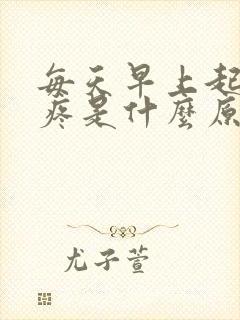 每天早上起
疼是什麼原
尤子萱